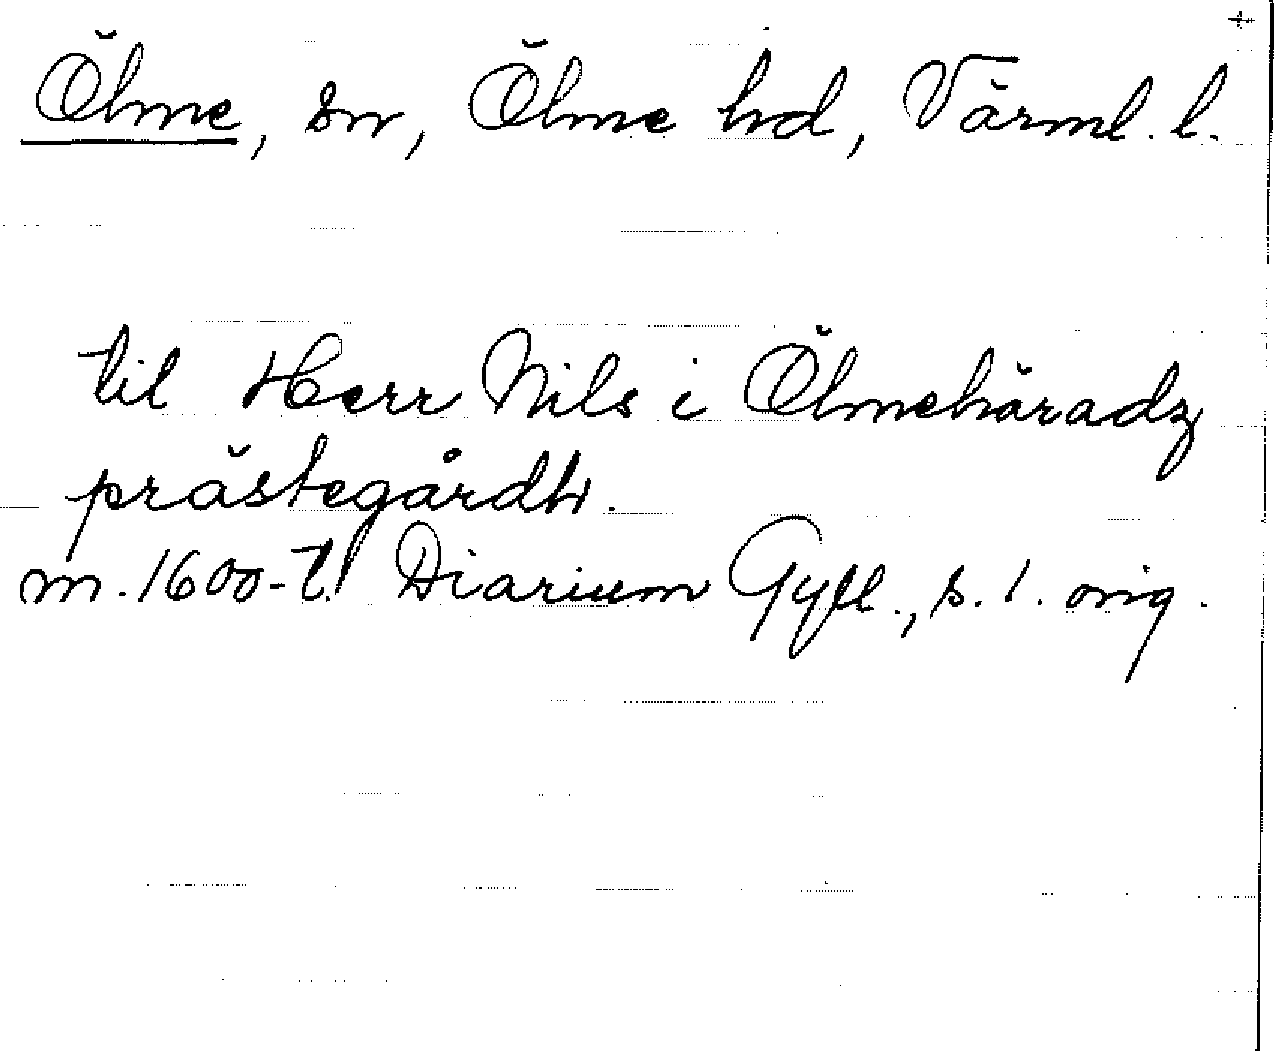 Ölme, sn, Ölme hd, Värml. l.
til Herr Nils i Ölmehäradz
prästegårdh.
m. 1600-t. Diarium Gyll., s. 1. orig.